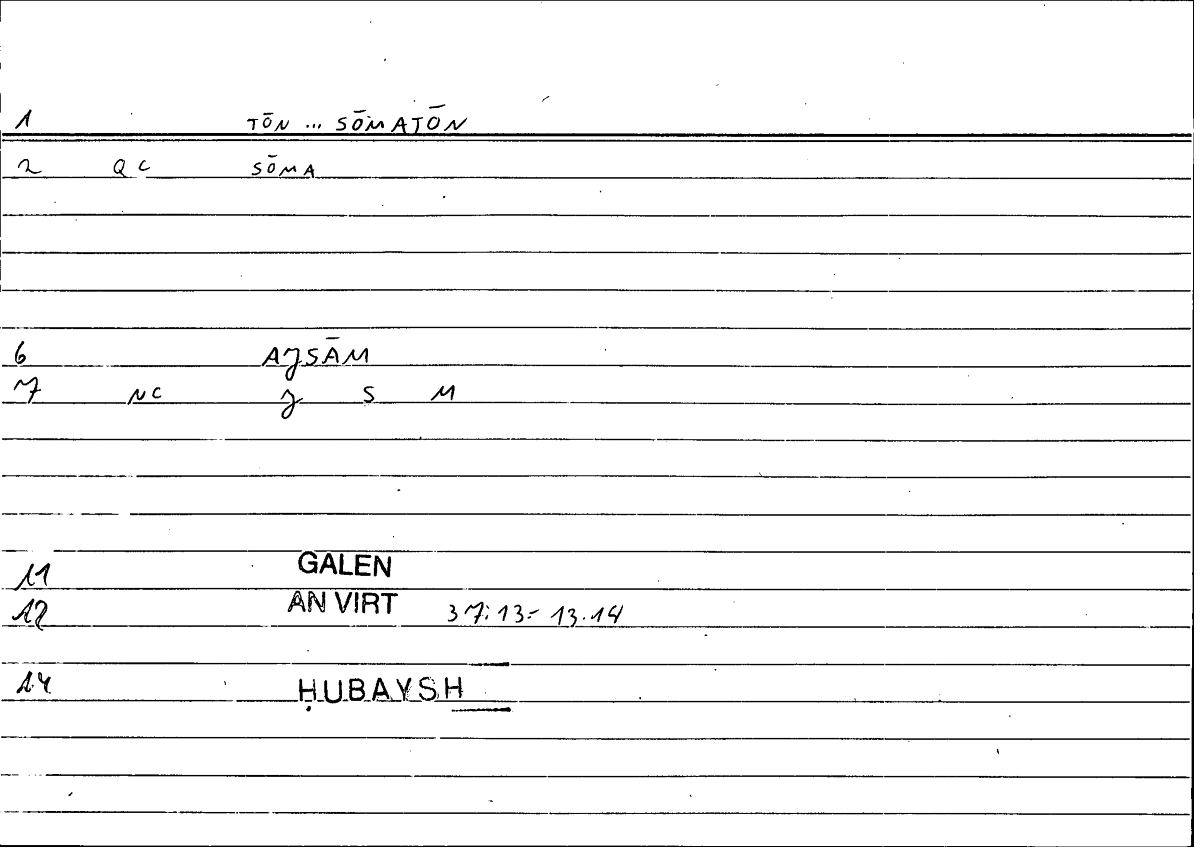 1 TŌN ... SŌMATŌN
2 QC SŌMA
6 AJSĀM
7 NC J S M
11 GALEN
12 AN VIRT 37:13- 13.14
14 ḤUBAYSH